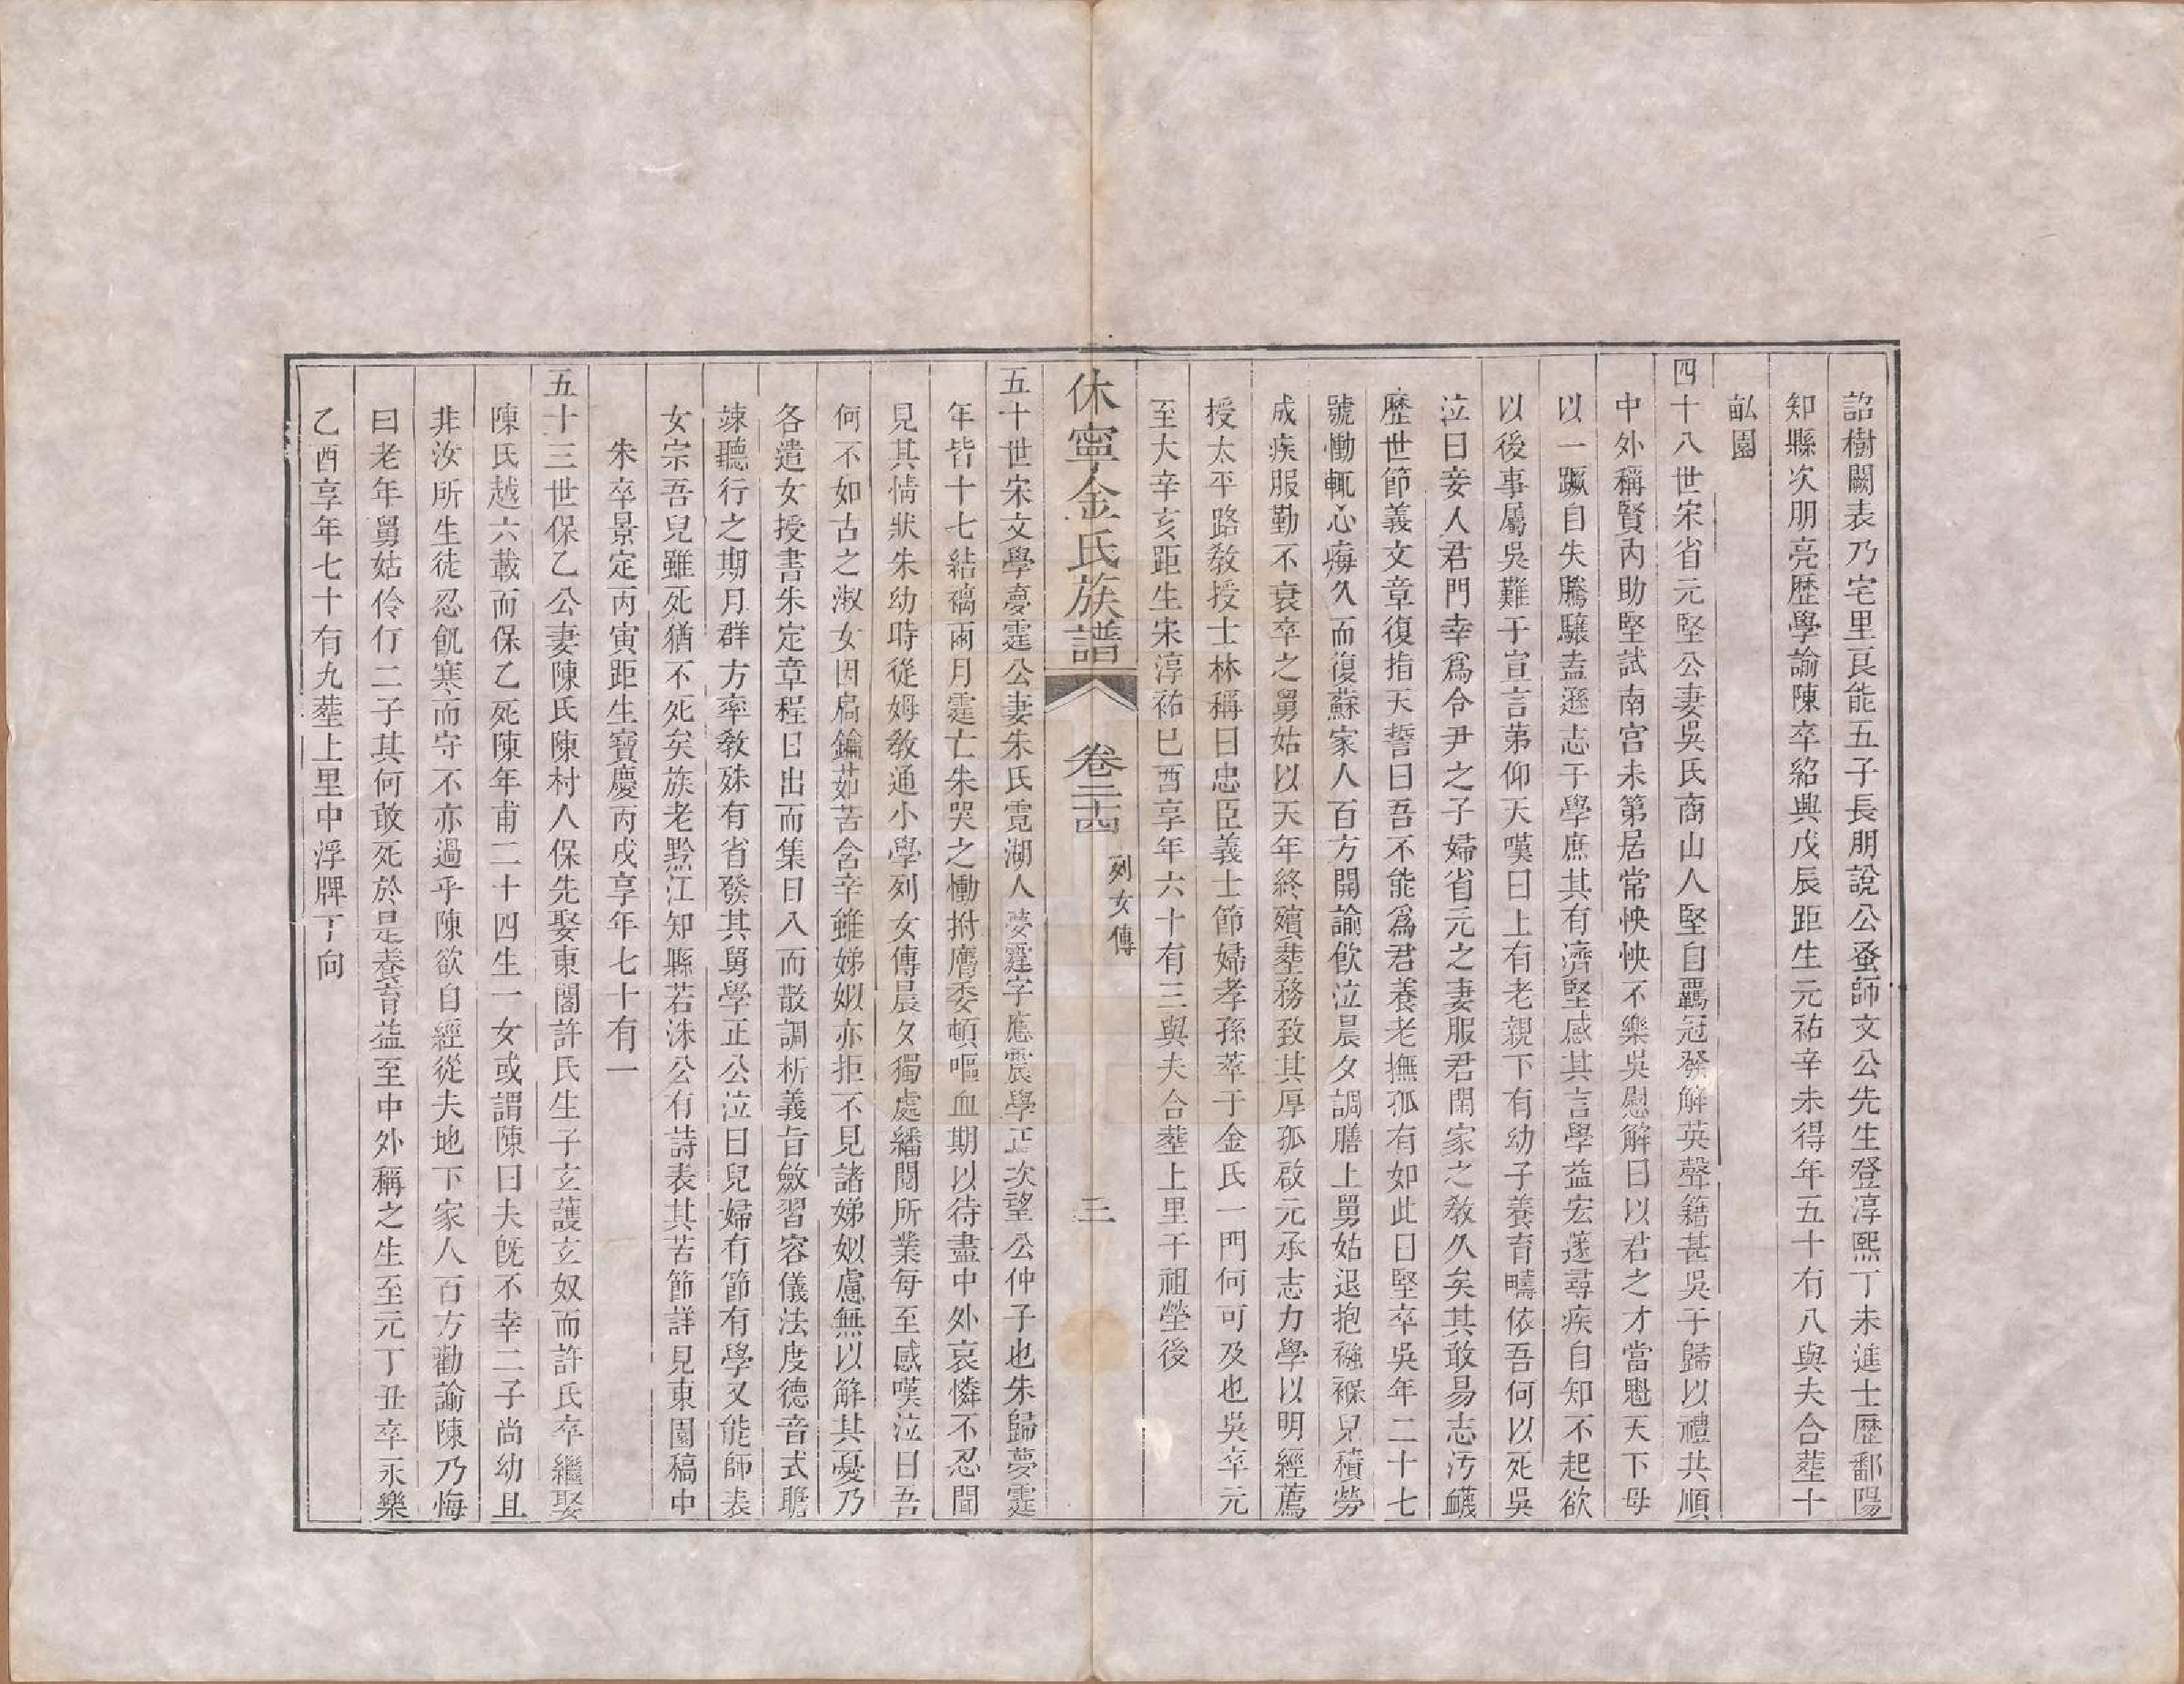 詔樹闕表乃宅里良能五子長朋說公蚤師文公先生登淳熙丁未進士歷鄱陽
知縣次朋亮歷學諭陳卒紹興戊辰距生元祐辛未得年五十有八與夫合塟十
畝園
四十八世宋省元堅公妻吳氏商山人堅自羈冠發解英聲籍甚吳于歸以禮共順
中外稱賢內助堅試南宫未第居常怏怏不樂吳慰解曰以君之才當魁天下毋
以一蹶自失騰驤盍遜志于學庶其有濟堅感其言學益宏邃尋疾自知不起欲
以後事屬吳難于宣言苐仰天嘆曰上有老親下有幼子養育疇依吾何以死吳
泣曰妾人君門幸爲令尹之子婦省元之妻服君閑家之敎久矣其敢易志汚衊
歷世節義文章復指天誓曰吾不能爲君養老撫孤有如此日堅卒吳年二十七
號慟輒心痗久而復蘇家人百方開諭飲泣晨夕調膳上舅姑退抱襁褓兒積勞
成疾服勤不衰卒之舅姑以天年終殯塟務致其厚孤啟元承志力學以明經薦
授太平路敎授士林稱曰忠臣義士節婦孝孫萃于金氏一門何可及也吳卒元
至大辛亥距生宋淳祐巳酉享年六十有三與夫合塟上里干祖塋後
休寧金氏族譜 卷二十四 列女傳 三
五十世宋文學夢霆公妻朱氏霓湖人夢霆字應震學正次望公仲子也朱歸夢霆
年皆十七結褵兩月霆亡朱哭之慟拊膺委頓嘔血期以待盡中外哀憐不忍聞
見其情狀朱幼時從姆敎通小學列女傳晨夕獨處繙閱所業每至感嘆泣曰吾
何不如古之淑女因扃鑰茹苦含辛雖娣姒亦拒不見諸娣姒慮無以解其憂乃
各遣女授書朱定章程日出而集日入而散調析義旨斂習容儀法度德音式瞻
竦聽行之期月群方率敎殊有省發其舅學正公泣曰兒婦有節有學又能師表
女宗吾兒雖死猶不死矣族老黟江知縣若洙公有詩表其苦節詳見東園稿中
朱卒景定丙寅距生寶慶丙戌享年七十有一
五十三世保乙公妻陳氏陳村人保先娶東閣許氏生子玄護玄奴而許氏卒繼娶
陳氏越六載而保乙死陳年甫二十四生一女或謂陳曰夫旣不幸二子尚幼且
非汝所生徒忍飢寒而守不亦過乎陳欲自經從夫地下家人百方勸諭陳乃悔
曰老年舅姑伶仃二子其何敢死於是養育益至中外稱之生至元丁丑卒永樂
乙酉享年七十有九塟上里中浮牌丁向